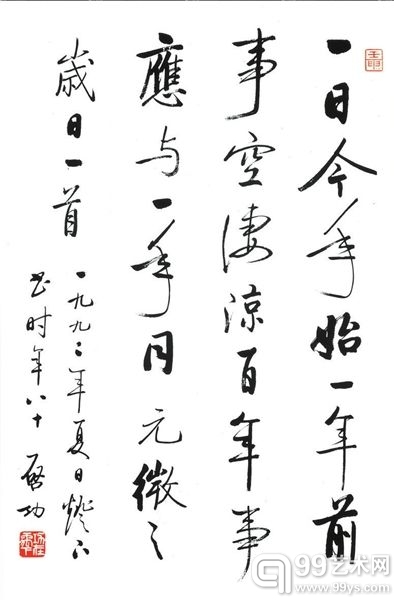 一日今年始一年前
事空凄涼百年事
應与一年同元微之
歲日一首
一九九二年夏日燈下
书时年八十 啟功
99艺术网
www.99ys.com